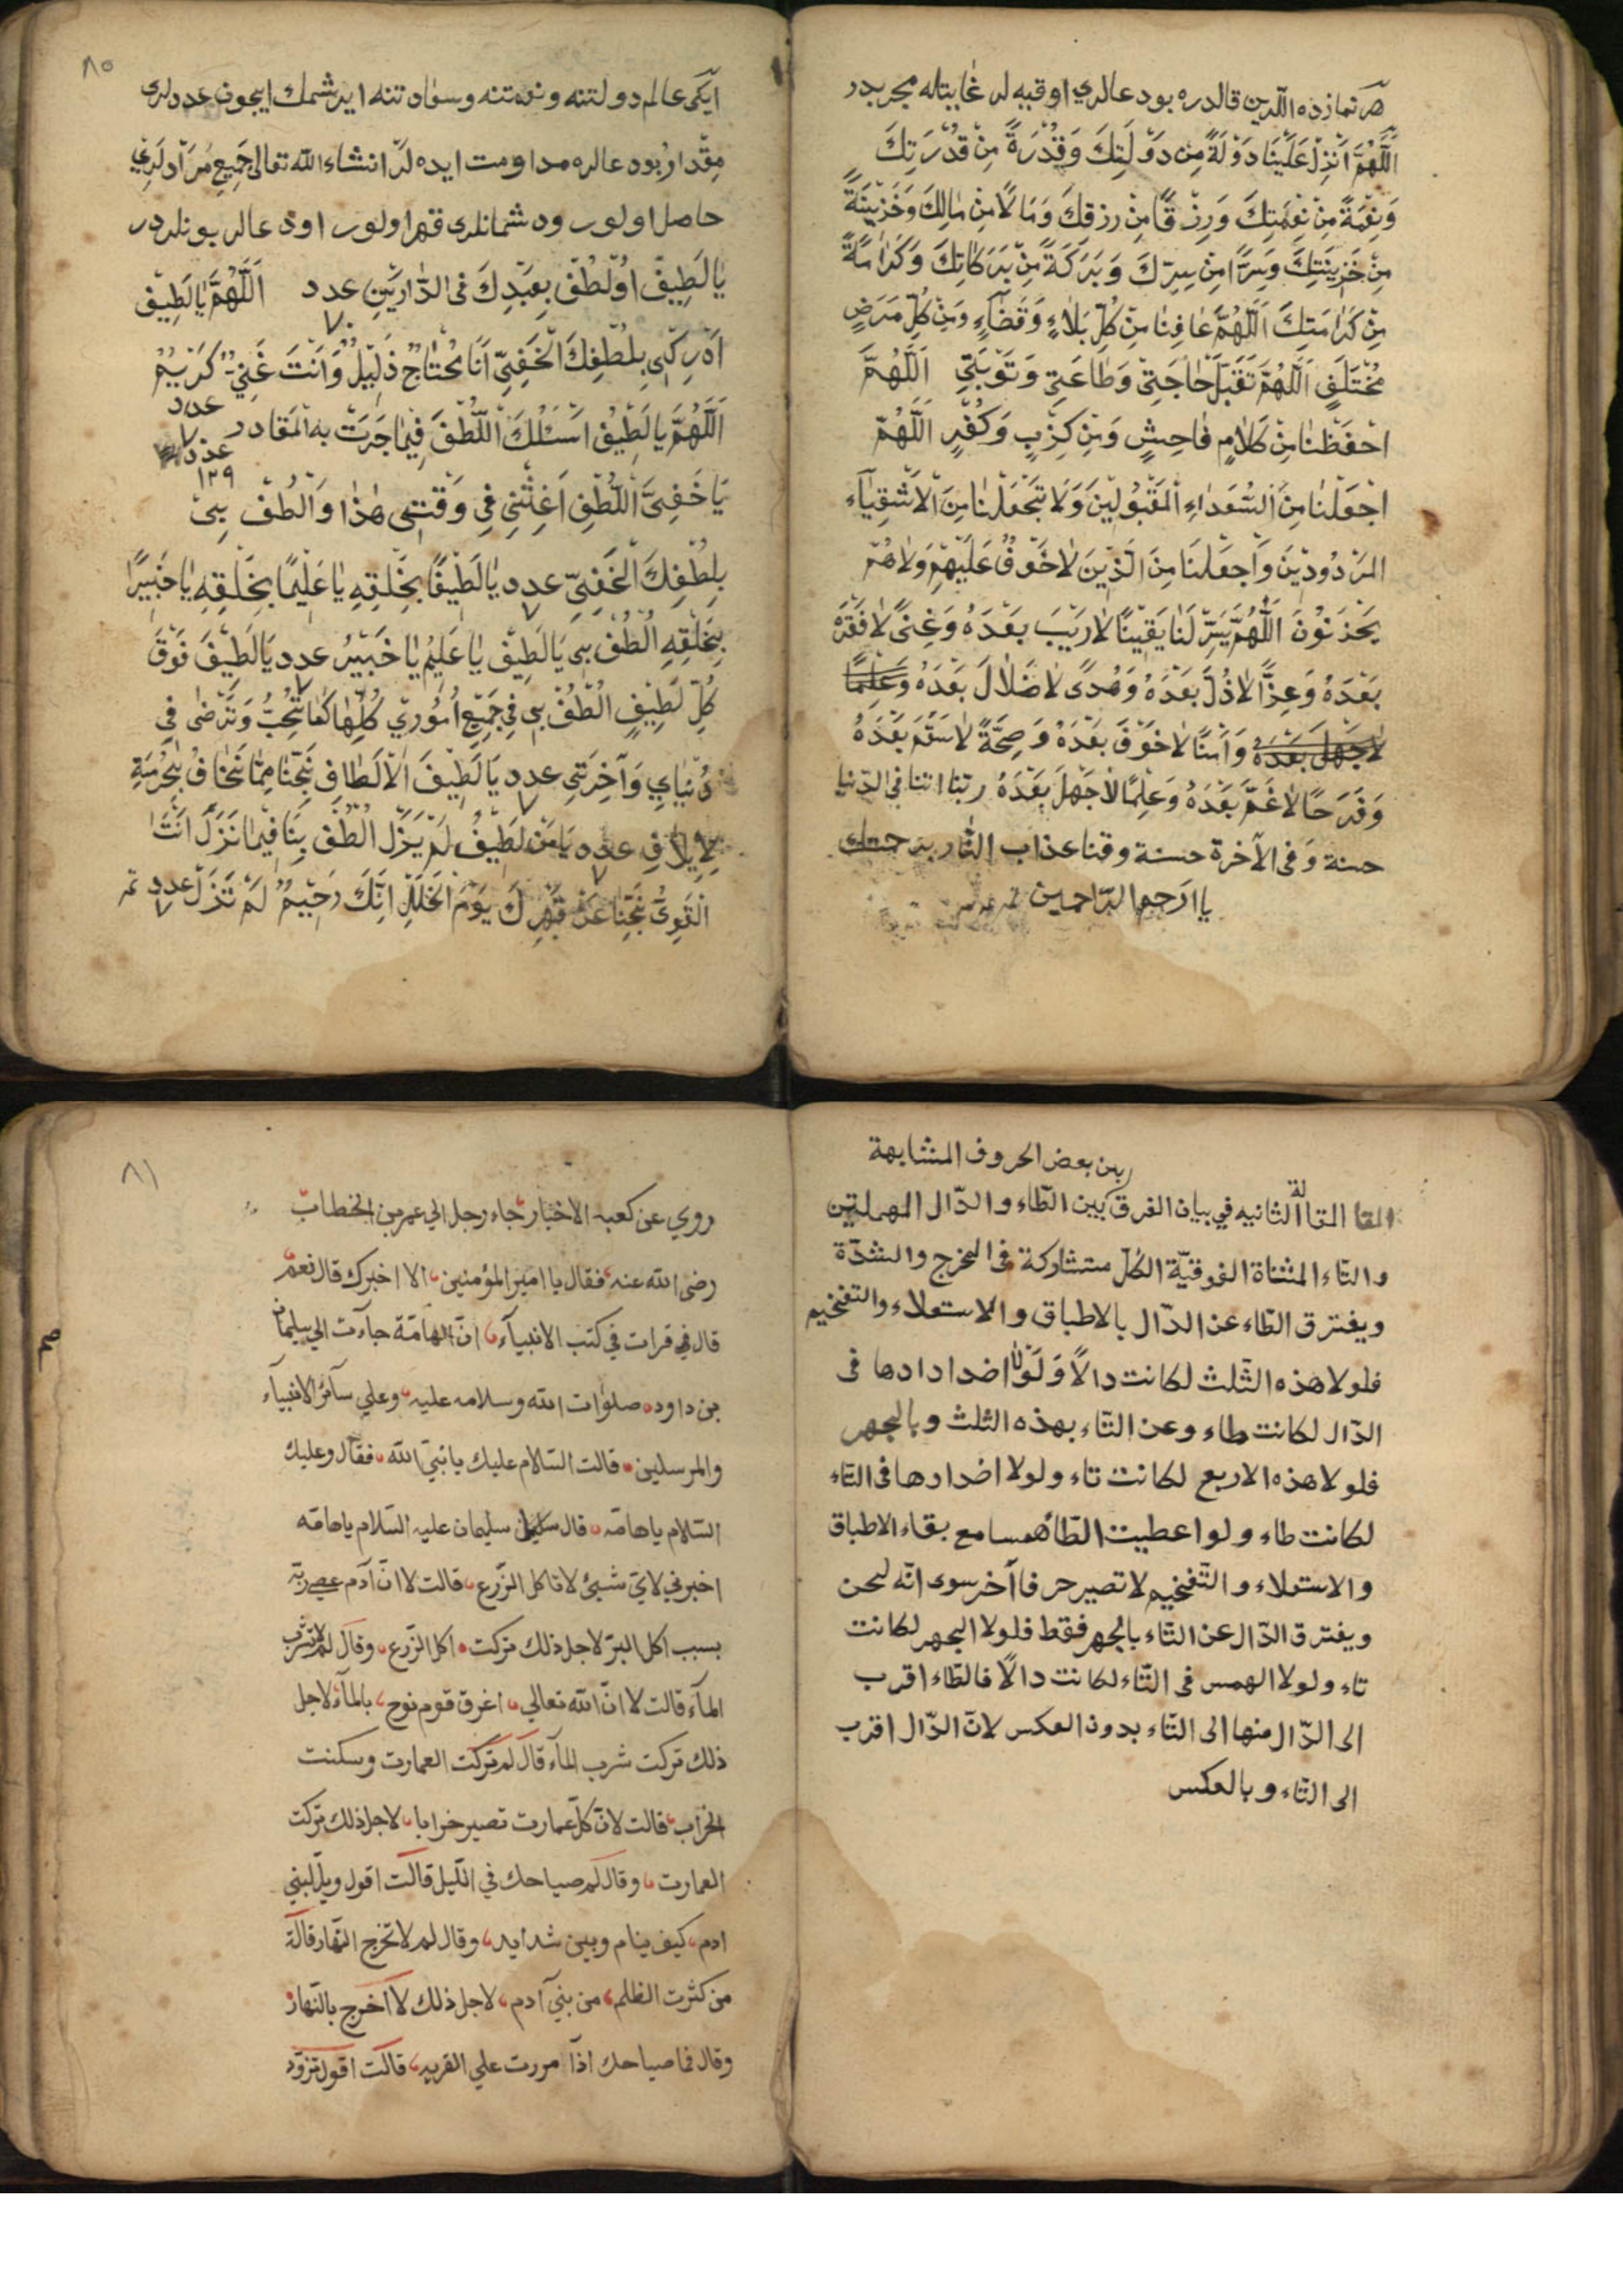 هر نمازده اللرين قالدره بو دعالري اوقيه لر غايتله مجربدر
اَللّٰهُمَّ اَنْزِلْ عَلَيْنَا دَوْلَةً مِن دَوْلَتِكَ وَقُدْرَةً مِنْ قُدْرَتِكَ
وَنِعْمَةً مِنْ نِعْمَتِكَ وَرِزْقًا مِنْ رِزْقِكَ وَمَالًا مِن مَالِكَ وَخَزِينَةً
مِنْ خَزِينَتِكَ وَسِرًّا مِنْ سِرِّكَ وَبَرَكَةً مِنْ بَرَكَاتِكَ وَكَرَامَةً
مِنْ كَرَامَتِكَ اَللّٰهُمَّ عَافِنَا مِنْ كُلِّ بَلَاءٍ وَقَضَاءٍ وَمِنْ كُلِّ مَرَضٍ
مُخْتَلَفٍ اَللّٰهُمَّ تَقَبَّلْ حَاجَتِي وَطَاعَتِي وَتَوْبَتِي اَللّٰهُمَّ
احْفَظْنَا مِنْ كَلَامٍ فَاحِشٍ وَمِنْ كِزْبٍ وَكُفْرٍ اَللّٰهُمَّ
اجْعَلْنَا مِنَ السُّعَدَاءِ الْمَقْبُولِينَ وَلَا تَجْعَلْنَا مِنَ الْاَشْقِيَاءِ
الْمَرْدُودِينَ وَاجْعَلْنَا مِنَ الَّذِينَ لَا خَوْفٌ عَلَيْهِمْ وَلَا هُمْ
يَحْزَنُونَ اَللّٰهُمَّ يَسِّرْ لَنَا يَقِينًا لَا رَيْبَ بَعْدَهُ وَغِنًى لَا فَقْرَ
بَعْدَهُ وَعِزًّا لَا ذُلَّ بَعْدَهُ وَهُدًى لَا ضَلَالَ بَعْدَهُ وَعِلْمًا
لَا جَهْلَ بَعْدَهُ وَاَمْنًا لَا خَوْفَ بَعْدَهُ وَصِحَّةً لَا سَقَمَ بَعْدَهُ
وَفَرَحًا لَا غَمَّ بَعْدَهُ وَعِلْمًا لَا جَهْلَ بَعْدَهُ ربنا اتنا في الدنيا
حسنة وفي الآخرة حسنة وقنا عذاب النار برحمتك
يا ارحم الراحمين
٨٠
ايكي عالم دولتنه ونعمتنه وسواد تنه ايرشمك ايچون عددلري
مقدار بو دعالره مداومت ايده لر انشاء الله تعالى جميع مرادلري
حاصل اولور ودشمانلري قهر اولور اول دعالر بونلردر
يَا لَطِيفُ اُولْطُفْ بِعَبْدِكَ فِي الدَّارَيْنِ عدد اَللّٰهُمَّ يَا لَطِيفُ
٧٠
اَدْرِكْنِي بِلُطْفِكَ الْخَفِيِّ اَنَا مُحْتَاجٌ ذَلِيلٌ وَاَنْتَ غَنِيٌّ كَرِيمٌ
عدد
٧
اَللّٰهُمَّ يَا لَطِيفُ اَسْئَلُكَ اللُّطْفَ فِيمَا جَرَتْ بِهِ الْمَقَادِر
عدد
١٢٩
يَا خَفِيَّ اللُّطْفِ اَغِثْنِي فِي وَقْتِي هٰذَا وَالْطُفْ بِي
بِلُطْفِكَ الْخَفِيِّ عدد يَا لَطِيفًا بِخَلْقِهِ يَا عَلِيمًا بِخَلْقِهِ يَا خَبِيرًا
٧
بِخَلْقِهِ اُلْطُفْ بِي يَا لَطِيفُ يَا عَلِيمُ يَا خَبِيرُ عدد يَا لَطِيفُ فَوْقَ
٧
كُلِّ لَطِيفٍ اُلْطُفْ بِي فِي جَمِيعِ اُمُورِي كُلِّهَا كَمَا تُحِبُّ وَتَرْضَى فِي
دُنْيَايِ وَآخِرَتِي عدد يَا لَطِيفَ الْاَلْطَافِ نَجِّنَا مِمَّا نَخَافُ بِحُرْمَةِ
٧
لِاِيلَافِ عدد يَا مَنْ لَطِيفٌ لَمْ يَزَلْ اُلْطُفْ بِنَا فِيمَا نَزَلَ اَنْتَ
٧
الْقَوِيُّ نَجِّنَا عَنْ قَهْرِكَ يَوْمَ الْخَلَلِ اِنَّكَ رَحِيمٌ لَمْ تَزَلْ عدد تم
٧
بين بعض الحروف المتشابهة
المقالة الثانيه في بيان الفرق بين الطاء والدال المهملتين
والتاء المثناة الفوقية الكل متشاركة في المخرج والشدة
ويفترق الطاء عن الدال بالاطباق والاستعلاء والتفخيم
فلولا هذه الثلث لكانت دالًا وَلَوْلَا اضدادها في
الدال لكانت طاء وعن التاء بهذه الثلث وبالجهر
فلولا هذه الاربع لكانت تاء ولولا اضدادها في التاء
لكانت طاء ولو اعطيت الطاء همسا مع بقاء الاطباق
والاستعلاء والتفخيم لا تصير حرفا آخر سوى انه لحن
ويفترق الدال عن التاء بالجهر فقط فلولا الجهر لكانت
تاء ولولا الهمس في التاء لكانت دالًا فالطاء اقرب
الى الدال منها الى التاء بدون العكس لان الدال اقرب
الى التاء وبالعكس
٨١
روي عن كعب الاخبار جاء رجل الي عمر بن الخطاب
رضى الله عنه فقال يا امير المؤمنين الا اخبرك قال نعم
قال في قرات في كتب الانبيآء ان الهامّة جاءت الي سليمان
بن داود صلوات الله وسلامه عليه وعلي سآئر الانبيآء
والمرسلين قالت السلام عليك يا نبي الله فقال وعليك
السلام يا هامّه قال سليمان عليه السلام يا هامّه
اخبرني لاي شيئ لا تاكل الزرع قالت لا ان آدم عصى ربه
بسبب اكل البر لاجل ذلك تركت اكل الزرع وقال لم لا تشرب
المآء قالت لا ان الله تعالي اغرق قوم نوح بالمآء لاجل
ذلك تركت شرب المآء قال لم تركت العمارت وسكنت
الخراب قالت لان كل عمارت تصير خرابا لاجل ذلك تركت
العمارت وقال لم صياحك في الليل قالت اقول ويل لبني
ادم كيف ينام وبين شدايد وقال لم لا تخرج النهار قالة
من كثرت الظلم من بني آدم لاجل ذلك لا اخرج بالنهار
وقال فما صياحك اذا مررت علي القريه قالت اقول تزود